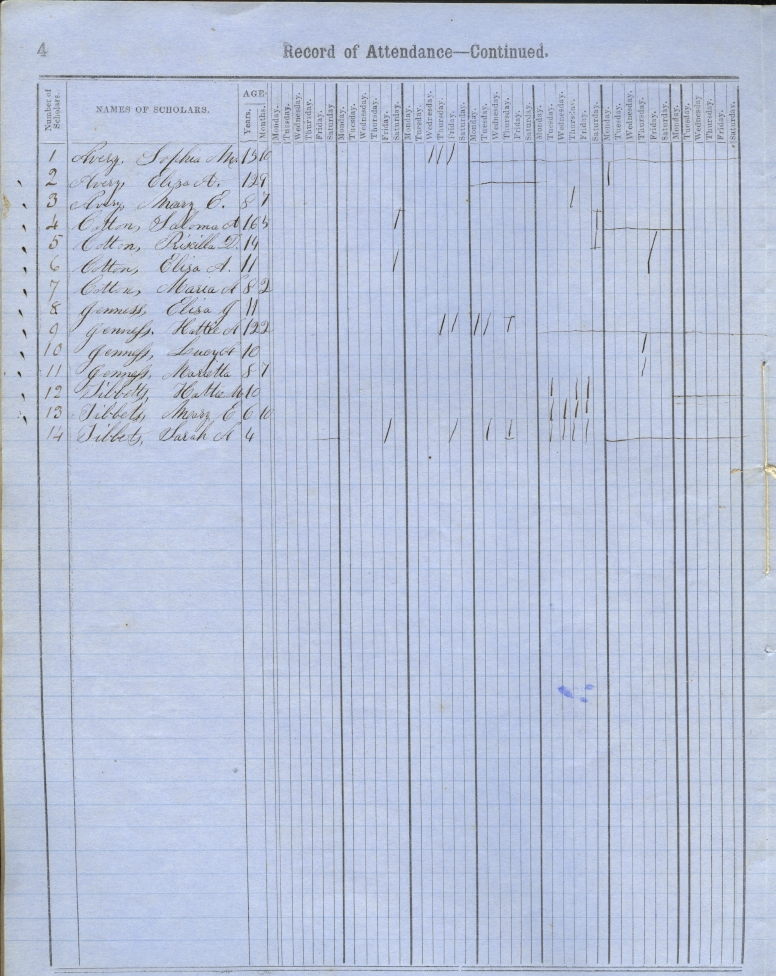 4 Record of Attendance—Continued.
Number of Scholars. NAMES OF SCHOLARS. AGE Years. Months. Monday. Tuesday. Wednesday. Thursday. Friday. Saturday Monday. Tuesday. Wednesday. Thursday. Friday. Saturday. Monday. Tuesday. Wednesday. Thursday. Friday. Saturday. Monday Tuesday. Wednesday. Thursday. Friday. Saturday. Monday. Tuesday. Wednesday. Thursday. Friday. Saturday. Monday. Tuesday. Wednesday. Thursday. Friday. Saturday. Monday. Tuesday. Wednesday Thursday. Friday. Saturday.
1 Avery, Sophia M. 13 10
2 Avery, Eliza A. 12 9
3 Avery, Mary E. 8 7
4 Cotton, Saloma A 16 5
5 Cotton, Riscilla D. 14
6 Cotton, Eliza A. 11
7 Cotton, Maria A 8 2
8 Jenness, Eliza J 11
9 Jenness, Hattie A 12 2
10 Jenness, Lucy A 10
11 Jenness, Marietta 8 7
12 Tibbetts, Hattie M 10
13 Tibbets, Mary E 6 10
14 Tibbets, Sarah A 4